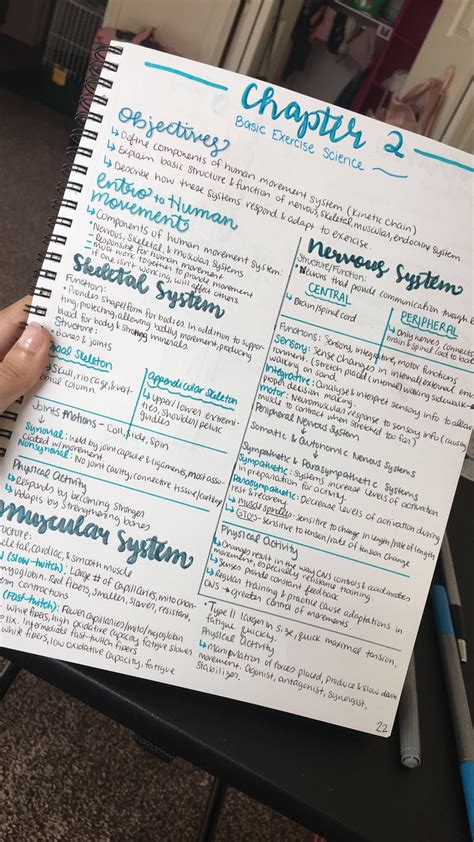 Chapter 2
Basic Exercise Science
Objectives
↳ Define components of human movement system (kinetic chain)
↳ Explain basic structure & function of nervous, skeletal, muscular, endocrine system
↳ Describe how these systems respond & adapt to exercise.
Intro to Human
movement
↳ Components of human movement system:
Nervous, Skeletal, & muscular systems
- Responsible for human movement
- must work together to produce movement
if one isn't working, will affect others
Skeletal System
Function:
• Provides shape/form for bodies. In addition to suppor-
ting, protecting, allowing bodily movement, producing
blood for body & storing minerals.
Structure:
• Bones & joints
Skeleton
↳ Skull, rib cage, & vert-
column
Appendicular Skeleton
↳ upper/lower extremi-
ties, shoulder/pelvic
girdles
Joints motions - Roll, Slide, Spin
Synovial: held by joint capsule & ligaments, most asso-
ciated w/movement
Nonsynovial: No joint cavity, connective tissue/cartilage
Physical Activity
↳ Responds by becoming stronger
↳ Adapts by strengthening bones
muscular System
cardiac, & smooth muscle
(Slow-twitch): Large # of capillaries, mitochon-
myoglobin. Red fibers, smaller, slower,
contractions
(Fast-twitch): Fewer capillaries/mito/myoglobin
- white fibers, high oxidative capacity, fatigue slower
Intermediate fast-twitch fibers
white fibers, low oxidative capacity, fatigue
Nervous System
Structure/Function:
• Neurons that provide communication
CENTRAL
↳ Brain/spinal cord
PERIPHERAL
↳ Only nerves connect
brain & spinal cord to
Functions: Sensory, integrative, motor functions
Sensory: Sense changes in internal/external envi-
ronment. (Stretch placed (internal) walking
walking on sand)
Integrative: Analyze & interpret sensory info to allow
proper decision making.
motor: Neuromuscular response to sensory info (causing
muscle to contract when stretched too far)
Peripheral Nervous System
Somatic & Autonomic Nervous Systems
Sympathetic & Parasympathetic Systems
Sympathetic: Systems increase levels of activation
in preparation for activity.
Parasympathetic: Decrease levels of activation during
rest & recovery
↳ muscle spindles - sensitive to change in length/rate of lengthening
↳ GTO's - sensitive to tension/rate of tension change
Physical Activity
↳ Changes result in the way CNS controls & coordinates
movement, especially resistance training.
↳ Senses provide constant feedback.
↳ Regular training & practice cause adaptations in
CNS → greater control of movements
• Type II larger in size, quick maximal tension,
fatigue quickly.
Physical Activity
↳ Manipulation of forces placed, produce & slow down
movement. Agonist, antagonist, Synergist,
Stabilizer.
22